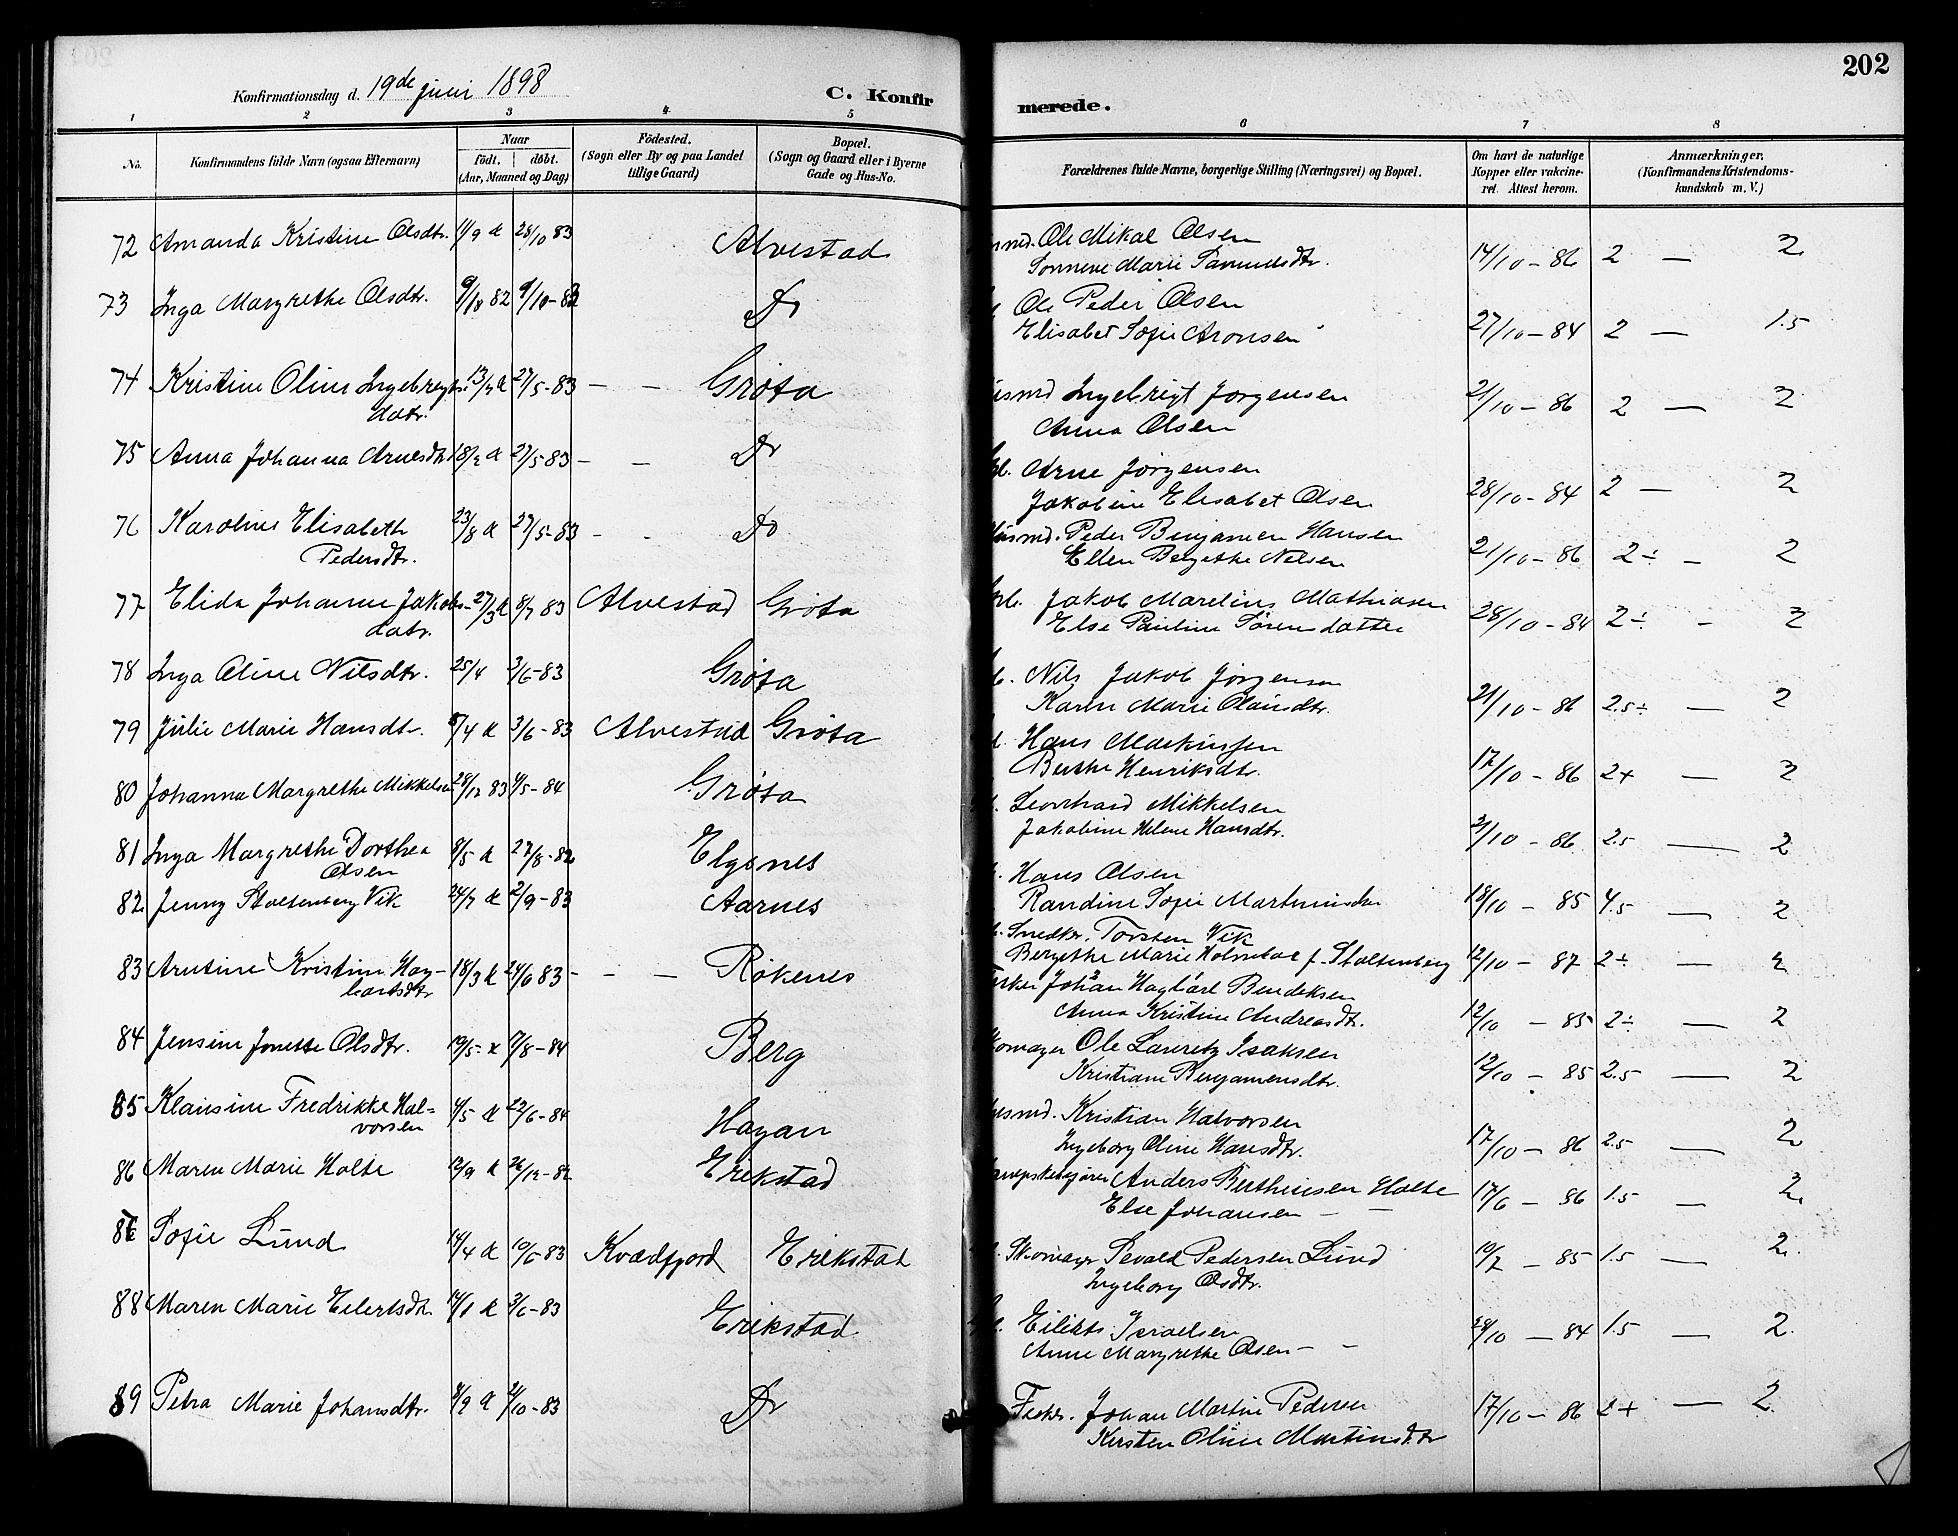 202
Konfirmationsdag d. 19de juni 1898
C. Konfir merede.
1 2 3 4 5 6 7 8
No.
Konfirmandens fulde Navn (ogsaa Efternavn)
Naar
födt. | døbt.
(Aar, Maaned og Dag)
Födested.
(Sogn eller By og paa Landet
tillige Gaard)
Bopæl.
(Sogn og Gaard eller i Byerne
Gade og Hus-No.
Forældrenes fulde Navne, borgerlige Stilling (Næringsvei) og Bopæl.
Om havt de naturlige
Kopper eller vakcine-
ret. Attest herom.
Anmærkninger.
(Konfirmandens Kristendoms-
kundskab m. V.)
72 Amanda Kristine Olsdtr. 28/10 83 Alvestad Ole Mikal Olsen 14/10-86 2 — 2
Marie
73 Inga Margrethe Olsdtr. 82 Do Ole Peder Olsen 27/10-84 2 — 1.5
Elisabet Sofie Aronsen
74 Kristine Oline Ingebregts- 27/5-83 — — Grøta Ingebrigt Jørgensen 21/10-86 2 — 2
datr. Anna Olsen
75 Anna Johanna Arnesdtr 27/5-83 — — Do Arne Jørgensen 28/10-84 2 — 2
Jakobine Elisabet Olsen
76 Karoline Elisabeth 23/8 27/5-83 - - Do Husmd. Peder Benjamin Hansen 21/10-86 2÷ — 2
Pedersdtr. Ellen Bergethe Nelsen
77 Elida Johanne Jakobs- 27/3 8/7 83 Alvestad Grøta Jakob Marelius Mathiasen 28/10-84 2÷ - 2
datr. Else Pauline Sørensdatter
78 Inga Oline Nilsdtr. 25/4 3/6-83 Grøta Nils Jakob Jørgensen 21/10-86 2.5÷ — 2
Karen Marie
79 Julie Marie Hansdtr. 3/6-83 Alvestad Grøta Hans 17/10-86 2+ — 2
Berthe Henriksdtr.
80 Johanna Margrethe Mikkelsen 28/12 83 4/5-84 Grøta Leonhard Mikkelsen 21/10-86 2.5 — 2
Jakobine Helene Hansdtr.
81 Inga Margrethe Dorthea 8/5 27/8-82 Elgsnes Hans Olsen 18/10-85 4.5 — 2
Olsen Randine Sofie
82 Jenny Stoltenberg Vik 24/7 2/9-83 Aarnes Snedkr. Torsten Vik 12/10-87 2÷ —
Bergethe Marie Holmboe f. Stoltenberg
83 Arntine Kristine Hag- 18/3 24/6 83 - - — Røkenes Johan Hagbart Bendiksen 12/10-85 2÷ — 2
bartsdtr Anna Kristine Andreasdtr.
84 Jensine Jonette Olsdtr. 19/5 17/8-84 Berg Ole Lauretz Isaksen 12/10-85 2.5 — 2
Kristiane Benjamensdtr.
85 Klausine Fredrikke Hal- 4/5 22/6-84 Hagan Kristian Halvorsen 17/10-86 2.5 — 2
vorsen Ingeborg Oline Hansdtr.
86 Maren Marie Holte 12/9 26/12-82 Erikstad Anders Berthinsen Holte 17/6-86 1.5 — 2
Else Johansen — —
87 Sofie Lund 14/4 10/6-83 Kvædfjord Erikstad Skomager Sevald Pedersen Lund 19/7-85 1.5 — 2.
Ingeborg Olsdtr.
88 Maren Marie Eilertsdtr. 14/1 3/6-83 Erikstad Israelsen 28/10-84 1.5 — 2.
Anne Margrethe Olsen — —
89 Petra Marie Johansdtr. 21/10-83 Do Johan Martin Pedersen 17/10-86 2+ — 2.
Kirsten Oline Martinsdtr